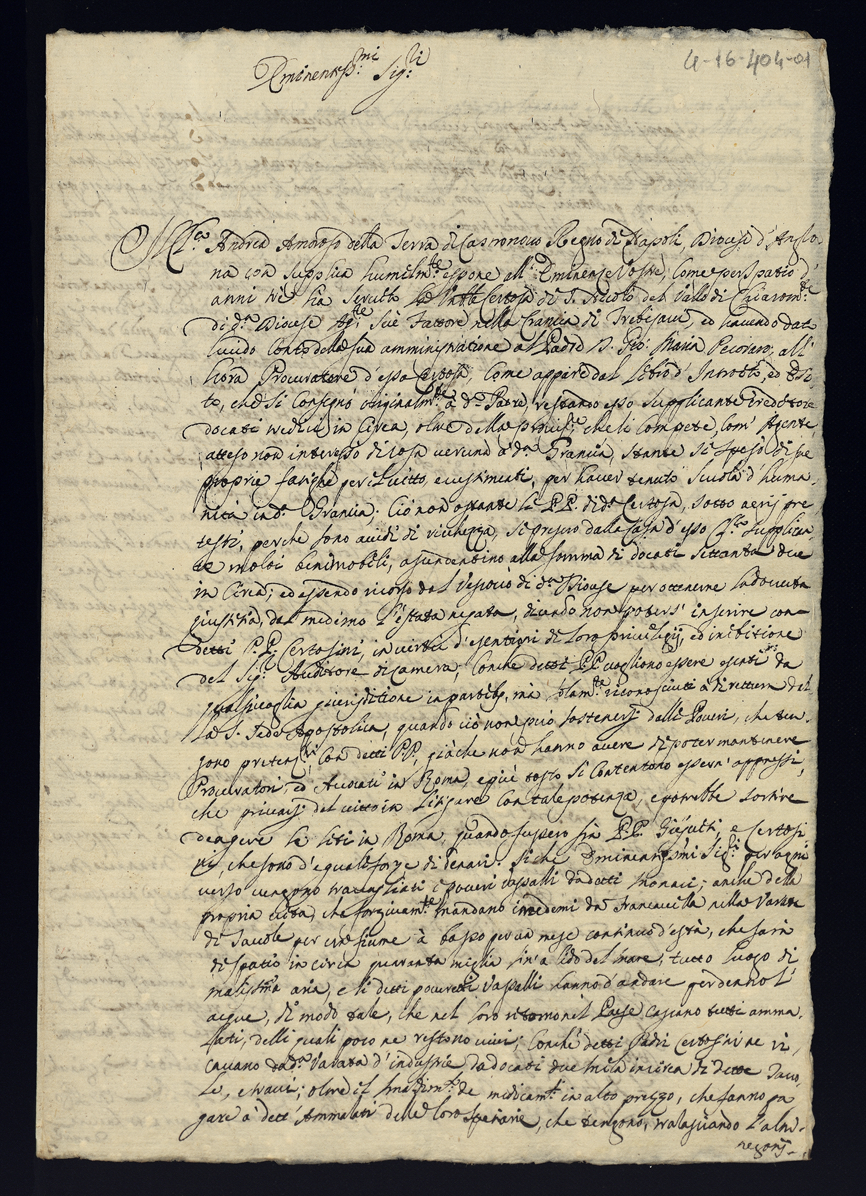 4-16-404-01
Eminentiss.mi Sig.ri
Andrea Amoroso della Terra di Castronovo Regno di Napoli, Diocesi d'Anglo-
na con supplica humilm.te espone all' Eminenze Vostre, come per spatio d'
anni tre ha servito la Certosa di S. Nicolò del Vallo di Chiarom.te
di d.a Diocese per Fattore nella Grancia di Trebisacc, ed havendo dat
lucido conto della sua amministratione al Padre D. Gio: Maria Pecoraro, all'
hora Procuratore d'essa Certosa, come appare dal libro d'Introito, ed Esi-
to, che si consegnò originalm.te a d.o Padre, restando esso supplicante creditore
docati tredici in circa, oltre della che li compete, com' Agente,
atteso non interesso di cosa veruna a d.a Grancia, stante si spesò di sue
proprie fatighe per il vitto, e vestimenti, per haver tenuto scuola d'huma-
nità in d.a Grancia; Ciò non ostante li PP. di d.a Certosa, sotto aerij pre-
testi, perche sono avidi di richezza, si presero dalla Casa d'esso supplican-
te molti beni mobili, ascendentino alla somma di docati settanta due
in circa; ed essendo ricorso dal Vescovo di d.a Diocese per ottenerne la dovuta
giustitia, dal medemo l'è stata negata, dicendo non potersi inserire con
detti P.P. Certosini, in virtù d'esentioni di loro privilegij, ed inibitione
del Sig.r Auditore di Camera, Conche detti P.P. vogliono essere esenti da
qualsivoglia giurisditione in partibus, ma solam.te riconosciuti a direttura dal-
la S. Sede Apostolica, quando ciò non può sostenersi dalli Poveri, che ten-
gono pretens.ni con detti P.P., giàche non hanno avere di poter mantenere
Procuratori, ed Avocati in Roma, e più tosto si contentono essern' oppressi,
che privarsi del vitto in litigare con tale potenza, e potrebbe sortire
d'agere le liti in Roma, quando fussero fra P.P. Giesuiti, e Certosi-
ni, che sono d'eguali forze di denari. Sichè Eminentissimi Sig.ri per ogni
verso vengono travagliati i poveri vassalli da detti Monaci; anche della
propria vita, che forzivam.te mandano i medemi da Francavilla nella Varata
di Tavole per un fiume à basso per un mese continuo d'està, che sarà
di spatio in circa quaranta miglia in'a lido del mare, tutto luogo di
malissima aria, e li detti poveretti Vassalli hanno d'andare per dentro l'
acque, di modo tale, che nel loro ritorno nel Paese cascano tutti amma-
lati, delli quali poco ne restono vivi; Conchè detti Padri Certosini ne ri-
cavano da d.a Varata d'industria da docati due mila in circa di dette Tavo-
le, e travi; oltre il de medicam.ti in alto prezzo, che fanno pa-
gare à dett' Ammalati delle loro spetiarie, che tengono, tralasciando l'altri
negotij